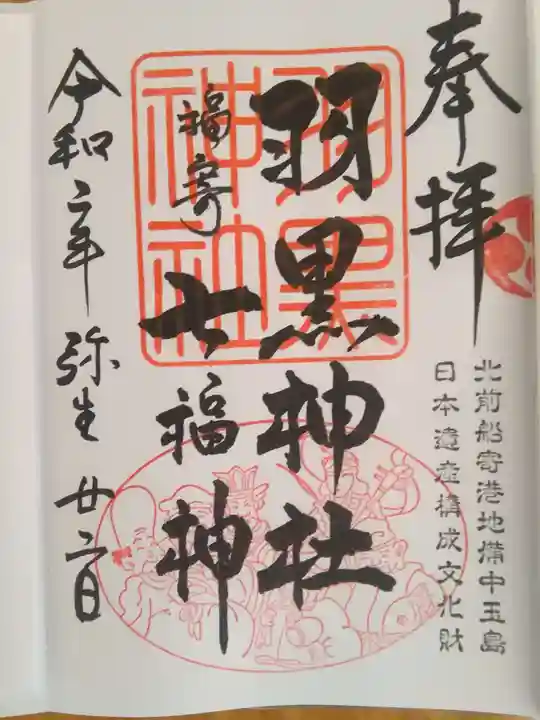 奉拝
北前船寄港地備中玉島
日本遺産構成文化財
羽黒神社
羽黒
神社
福寄
七福神
令和二年 弥生 廿二日